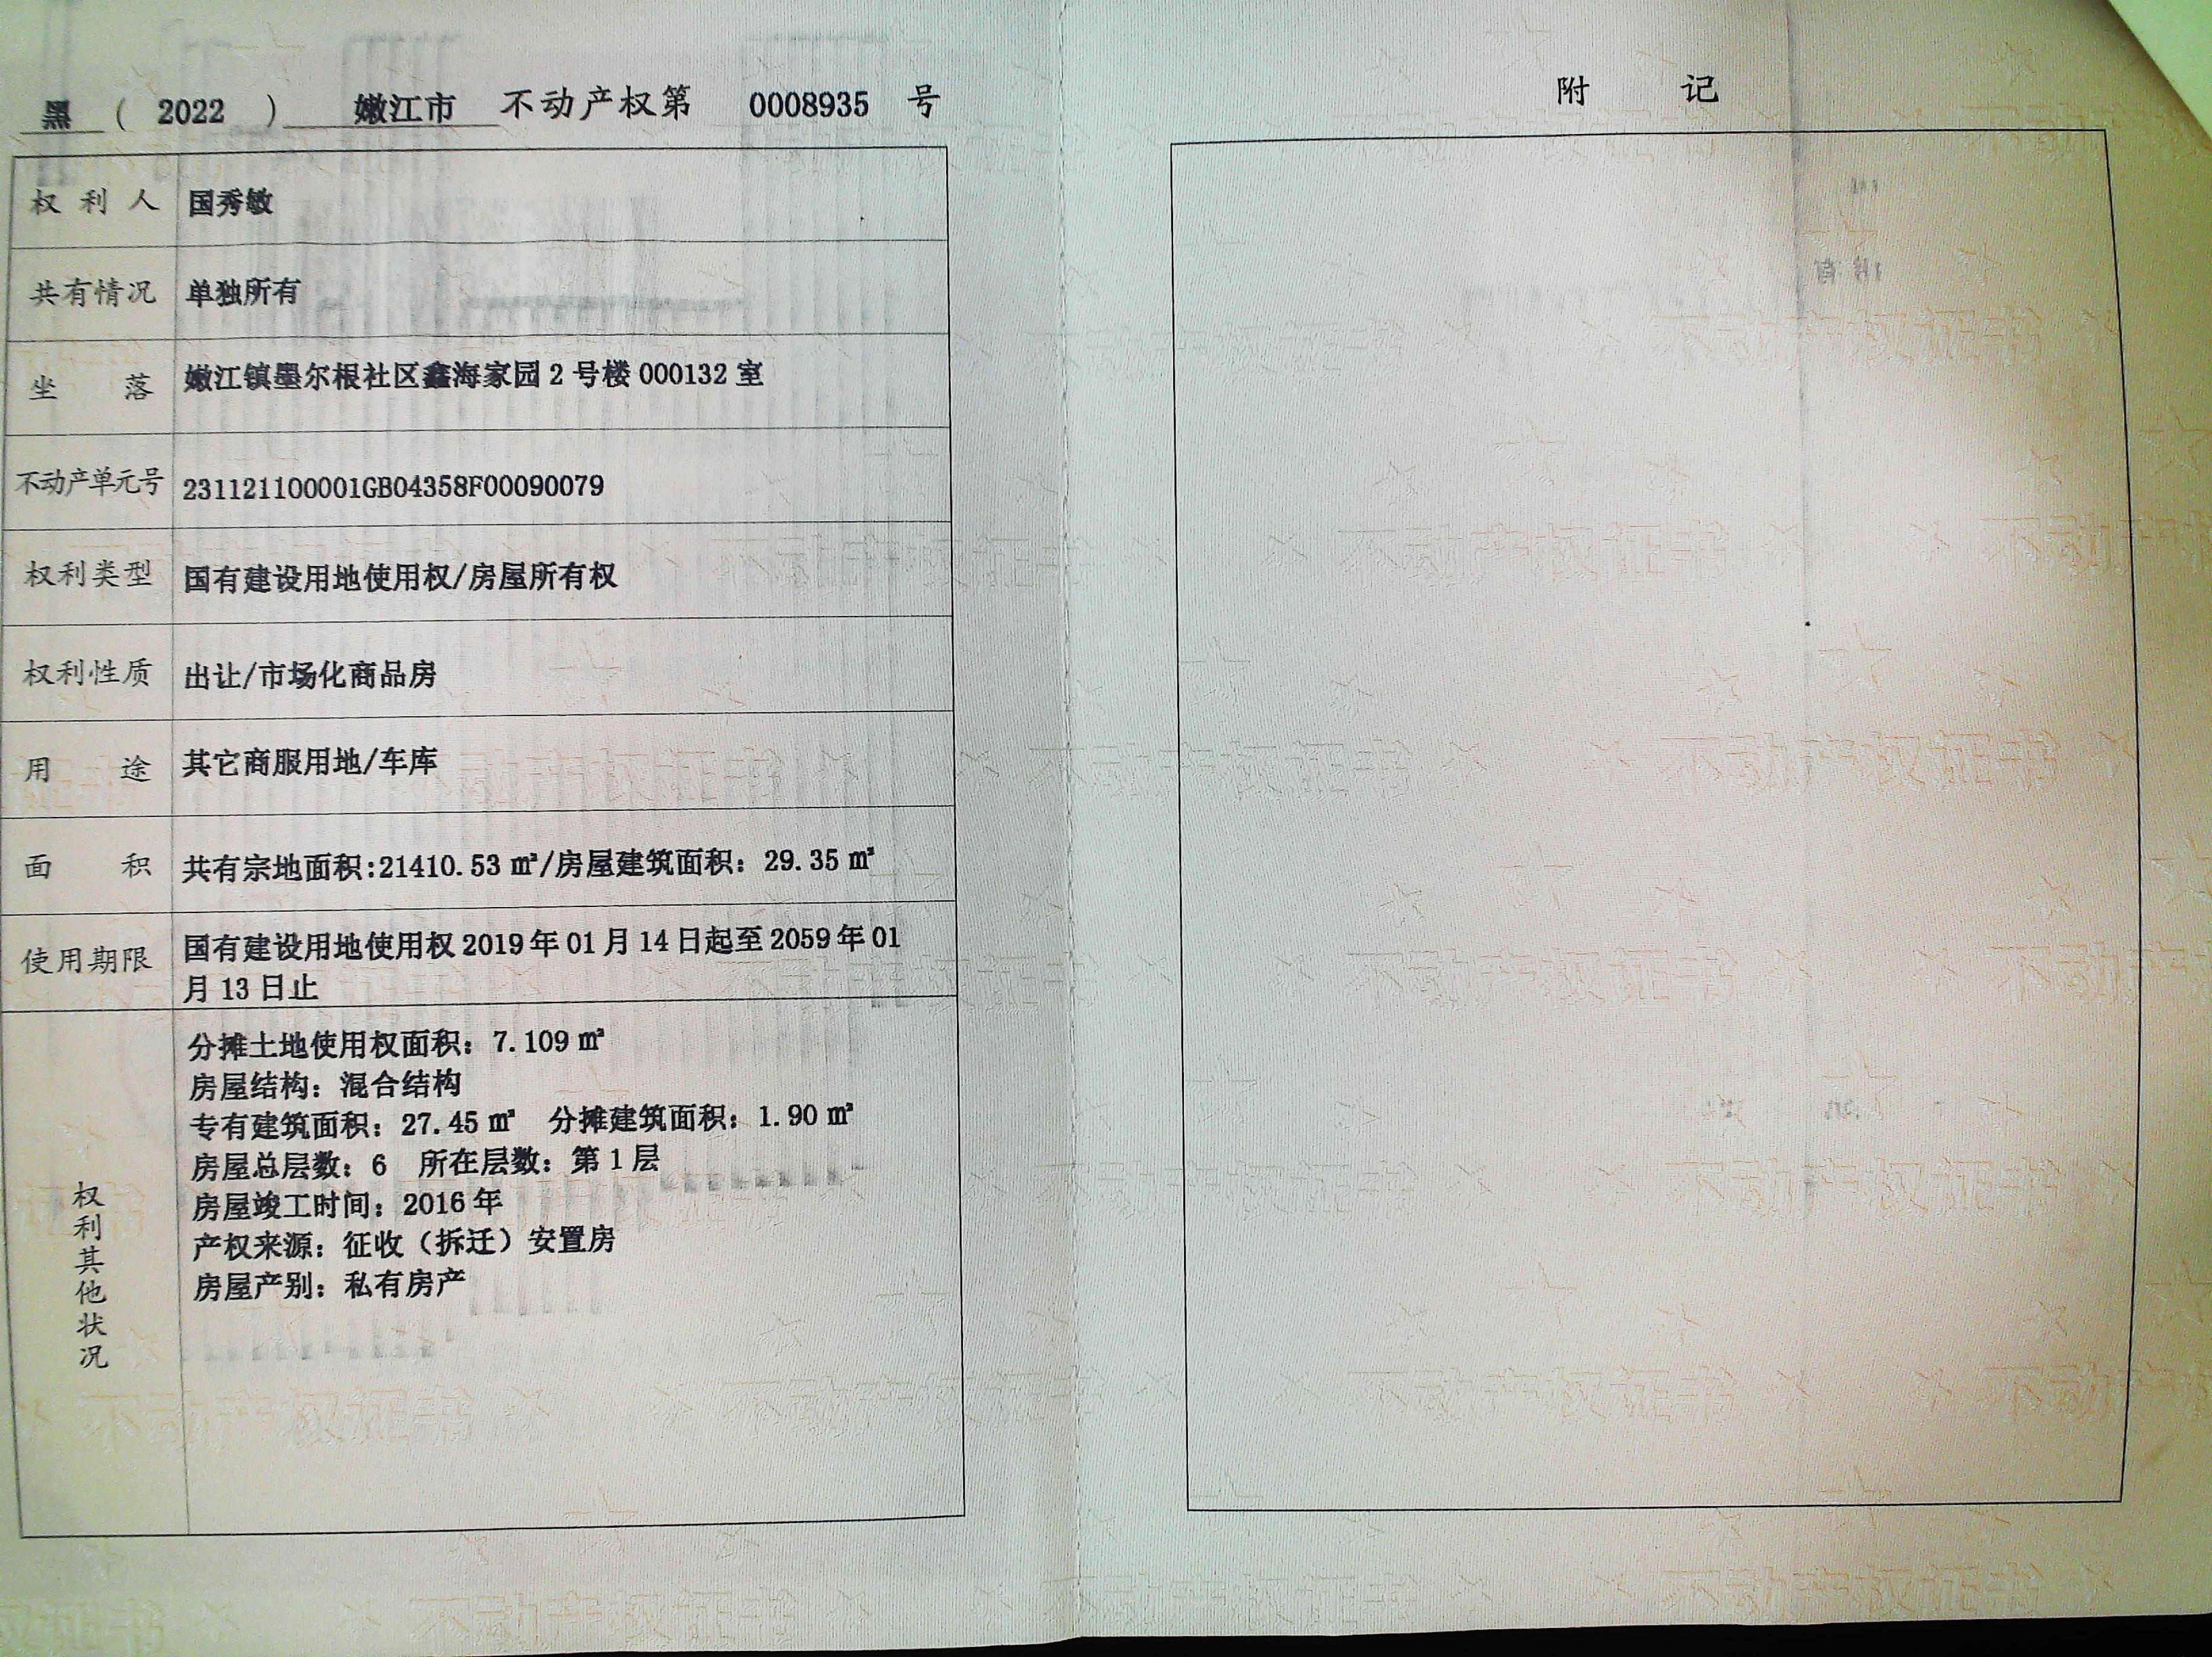 黑 ( 2022 ) 嫩江市 不动产权第 0008935 号
权利人 国秀敏
共有情况 单独所有
坐落 嫩江镇墨尔根社区鑫海家园2号楼000132室
不动产单元号 231121100001GB04358F00090079
权利类型 国有建设用地使用权/房屋所有权
权利性质 出让/市场化商品房
用途 其它商服用地/车库
面积 共有宗地面积:21410.53㎡/房屋建筑面积：29.35㎡
使用期限 国有建设用地使用权2019年01月14日起至2059年01
月13日止
权利其他状况
分摊土地使用权面积：7.109㎡
房屋结构：混合结构
专有建筑面积：27.45㎡ 分摊建筑面积：1.90㎡
房屋总层数：6 所在层数：第1层
房屋竣工时间：2016年
产权来源：征收（拆迁）安置房
房屋产别：私有房产
附记